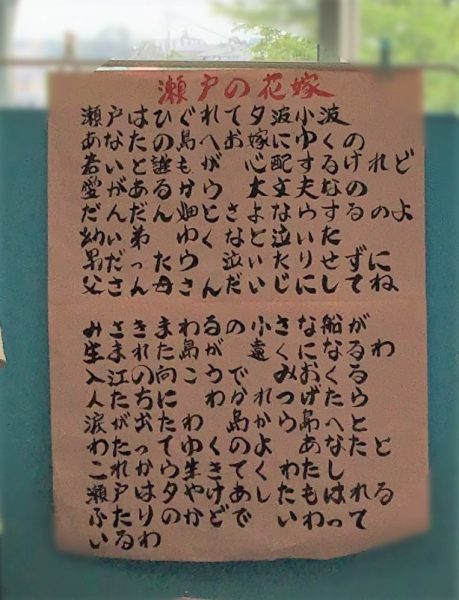 瀬戸の花嫁
瀬戸はひぐれて夕波小波
あなたの島へお嫁にゆくの
若いと誰もが心配するけれど
愛があるから大丈夫なの
だんだん畑とさよならするのよ
幼い弟ゆくなと泣いた
男だったら泣いたりせずに
父さん母さんだいじにしてね
みさきまわるの小さな船が
生まれた島が遠くになるわ
入江の向こうでみおくる
人たちにわかれつげたら
涙が出たわ島から島へと
わたってゆくのよあなたと
これから生てくわたし
瀬戸は夕やけあしたもはれる
ふたりのかどでいわって
いるわ